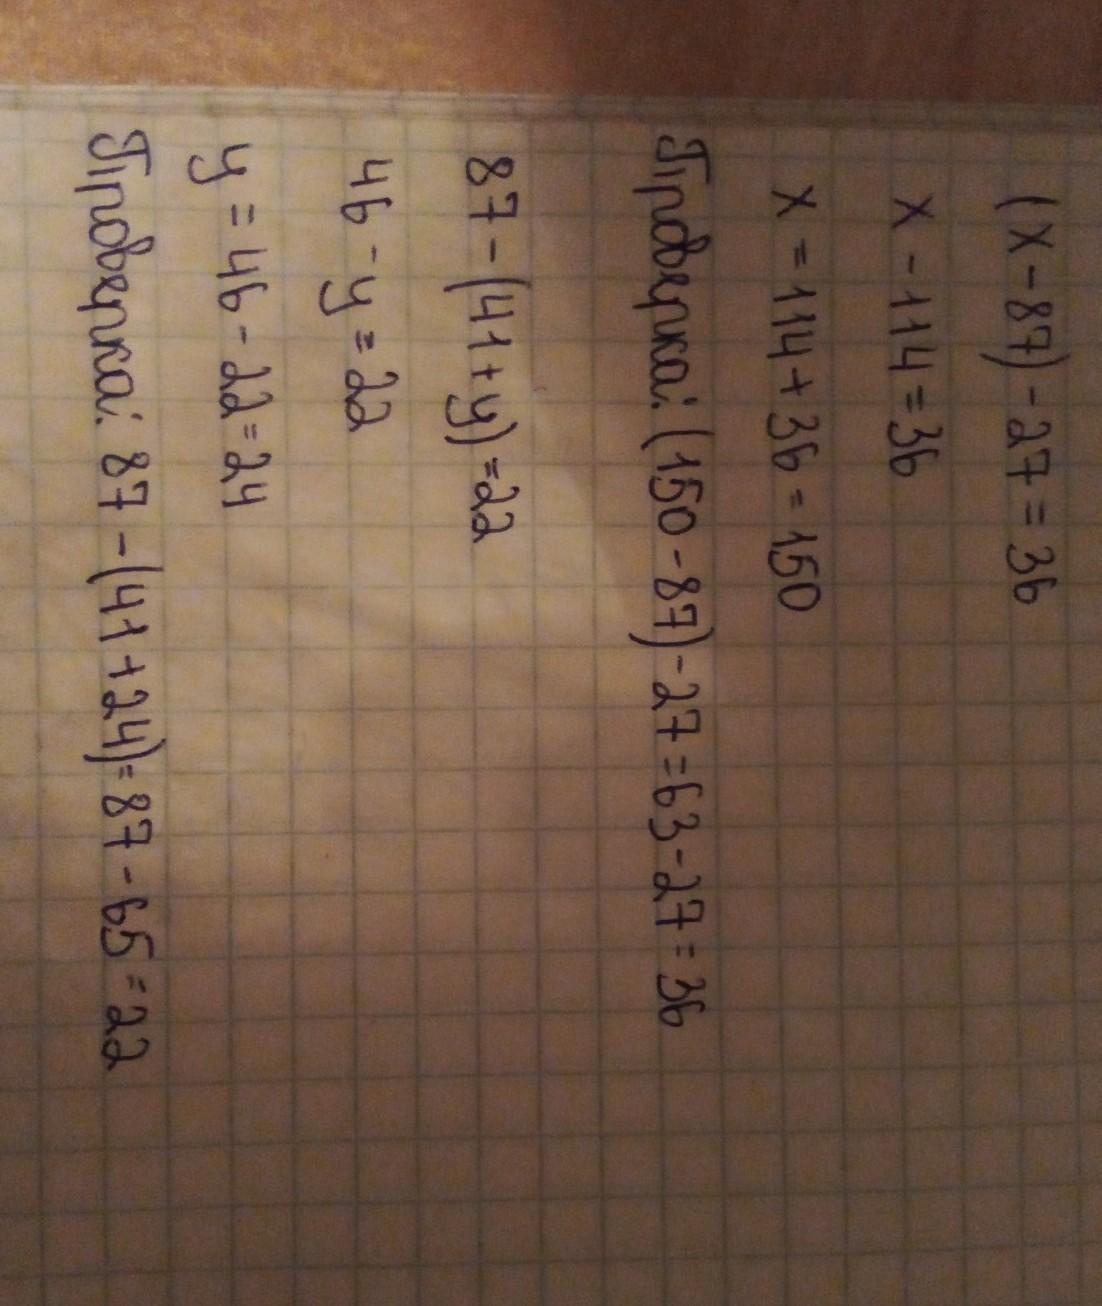 (x-87)-27=36
x-114=36
x=114+36=150
Проверка: (150-87)-27=63-27=36
87-(41+y)=22
46-y=22
y=46-22=24
Проверка: 87-(41+24)=87-65=22